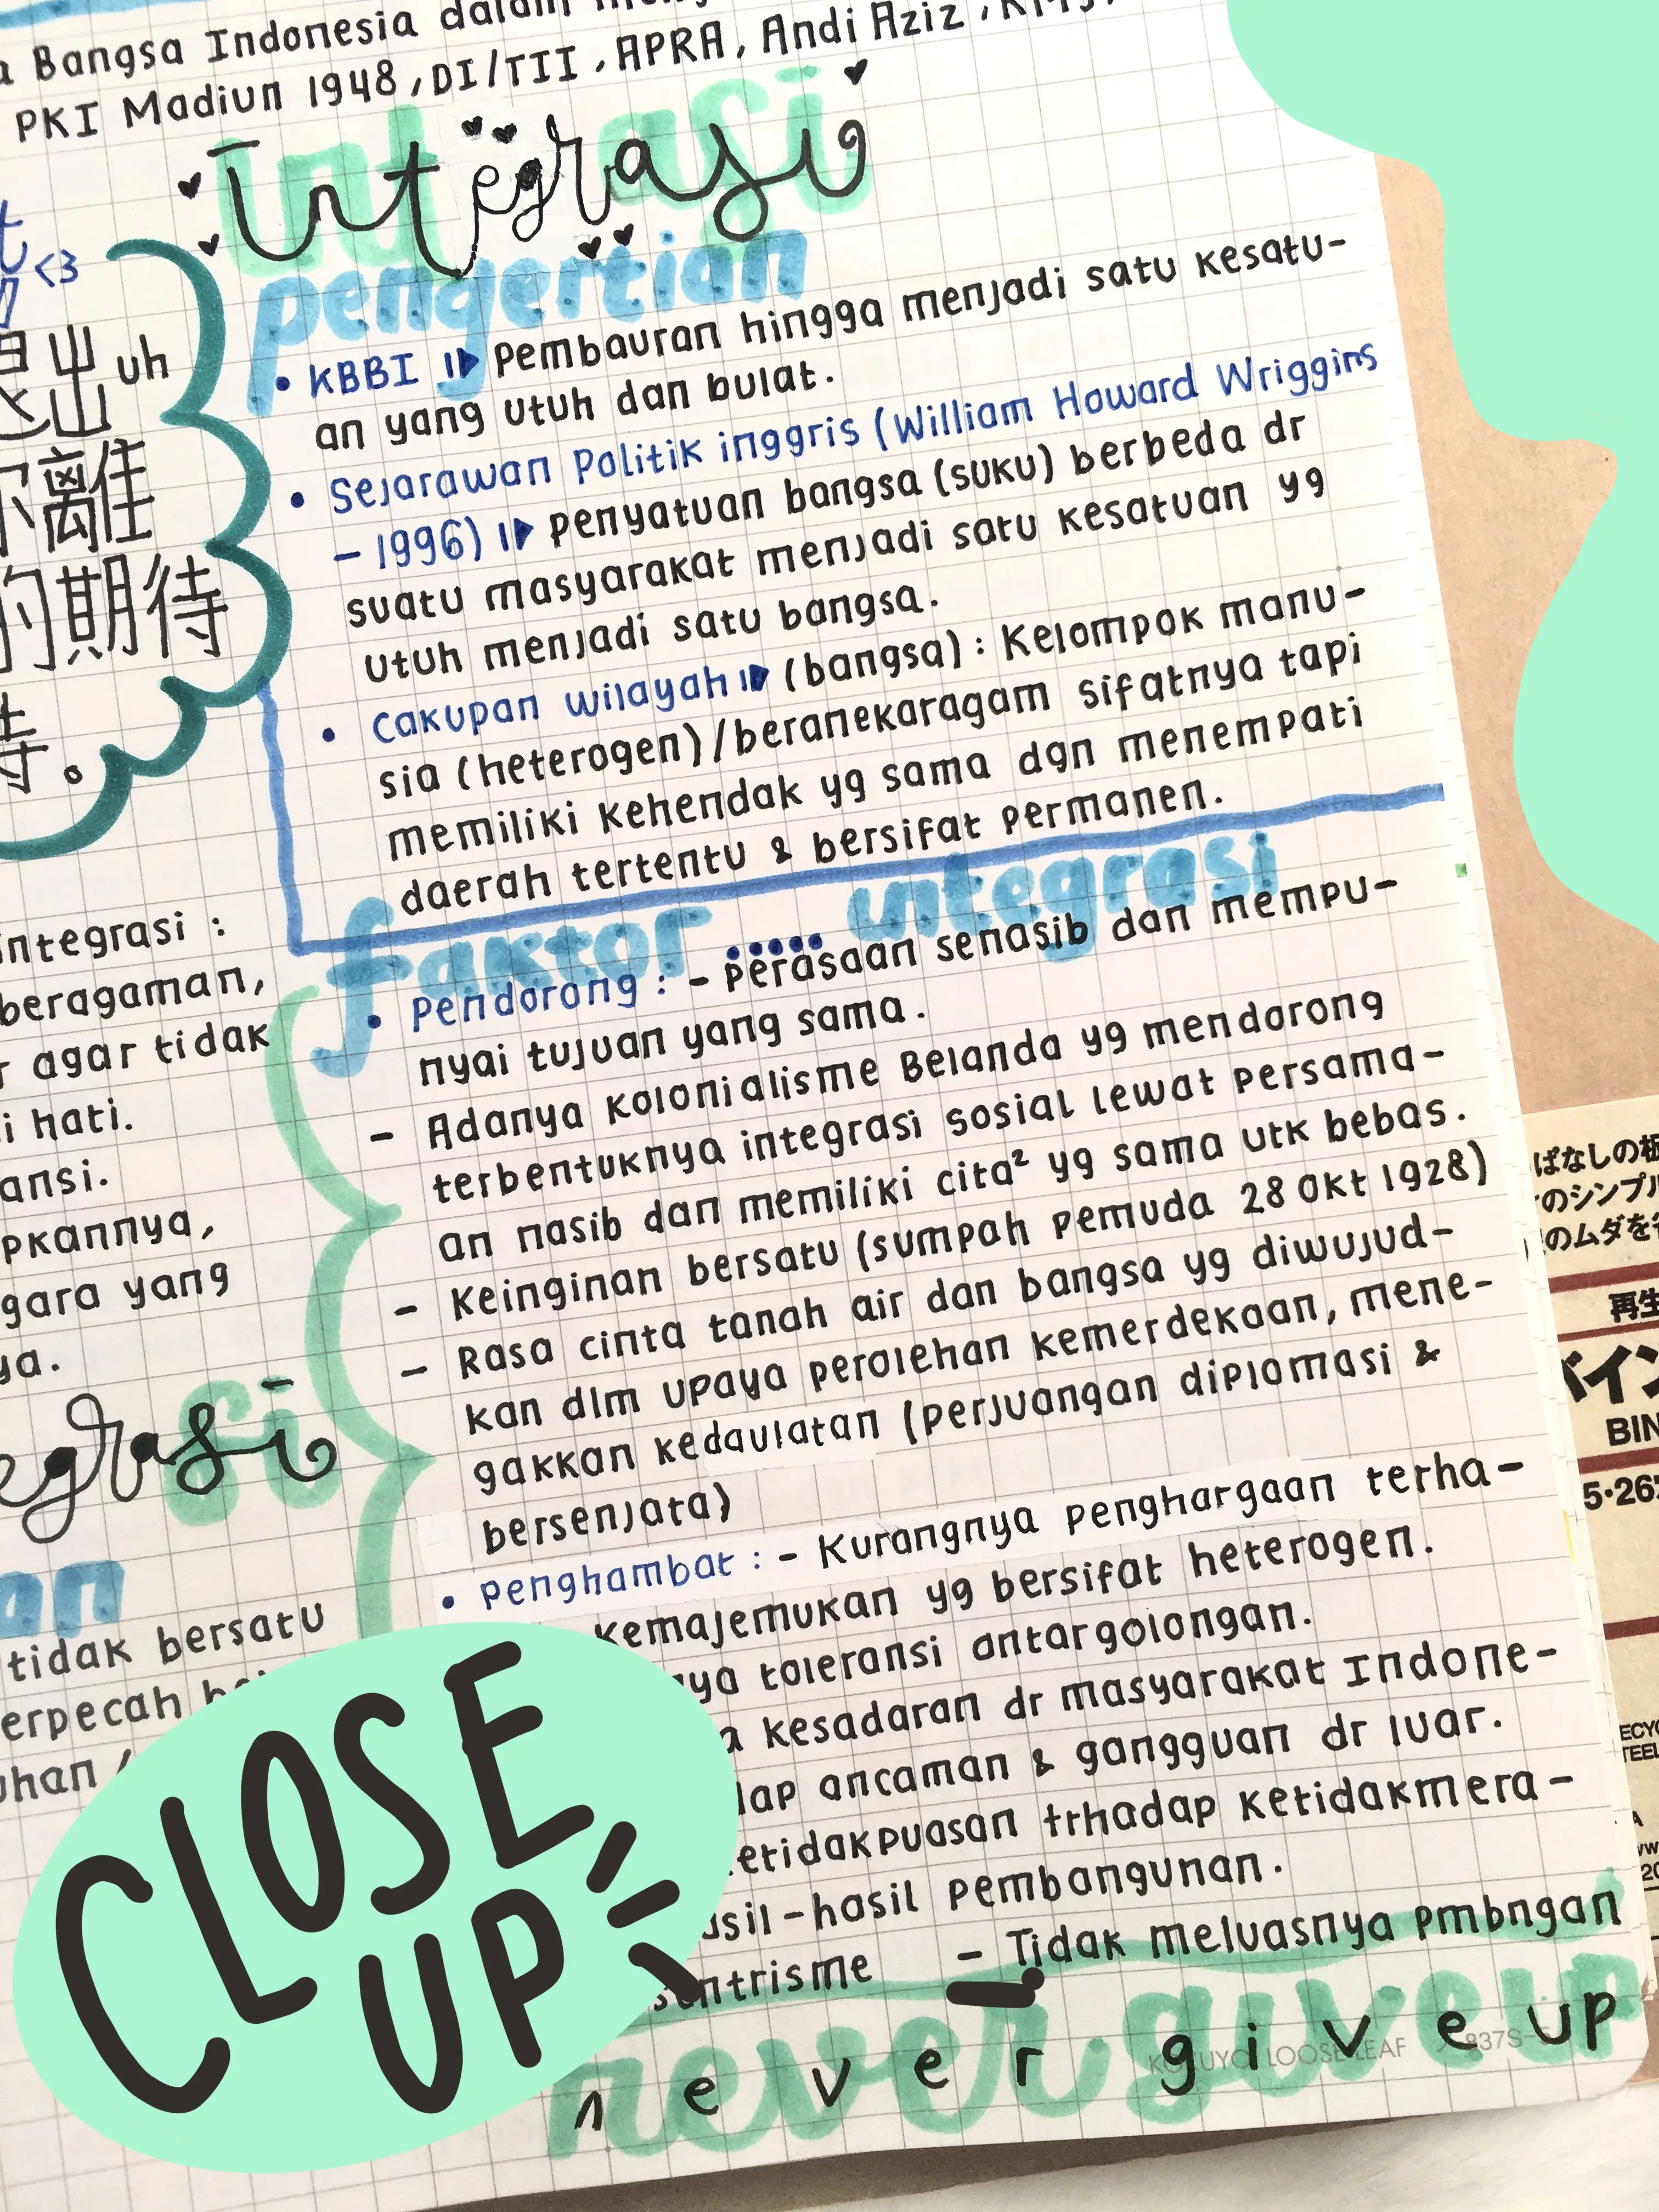 Bangsa Indonesia dalam
PKI Madiun 1948, DI/TII, APRA, Andi Aziz,
integrasi
pengertian
• KBBI Pembauran hingga menjadi satu kesatu-
an yang utuh dan bulat.
• Sejarawan Politik inggris (William Howard Wriggins
- 1996) penyatuan bangsa (suku) berbeda dr
suatu masyarakat menjadi satu kesatuan yg
utuh menjadi satu bangsa.
• Cakupan wilayah (bangsa) : Kelompok manu-
sia (heterogen)/beranekaragam sifatnya tapi
memiliki kehendak yg sama dgn menempati
daerah tertentu & bersifat permanen.
faktor ..... integrasi
• Pendorong : - Perasaan senasib dan mempu-
nyai tujuan yang sama.
- Adanya kolonialisme Belanda yg mendorong
terbentuknya integrasi sosial lewat persama-
an nasib dan memiliki cita² yg sama utk bebas.
- Keinginan bersatu (sumpah pemuda 28 Okt 1928)
- Rasa cinta tanah air dan bangsa yg diwujud-
kan dlm upaya perolehan kemerdekaan, mene-
gakkan kedaulatan (perjuangan diplomasi &
bersenjata)
• penghambat : - Kurangnya penghargaan terha-
kemajemukan yg bersifat heterogen.
toleransi antargolongan.
kesadaran dr masyarakat Indone-
ancaman & gangguan dr luar.
etidakpuasan trhadap ketidakmera-
asil-hasil pembangunan.
sentrisme - Tidak meluasnya pmbngan
never give up
never give up
KOKUYO LOOSE LEAF 837S
<3
uh
離住
的期待
待。
integrasi :
beragaman,
agar tidak
hati.
ansi.
pkannya,
gara yang
ya.
egrasi
an
tidak bersatu
erpecah
uhan
CLOSE
UP
ばなしの板
のシンプル
のムダを
再生
バイン
BIN
5・26